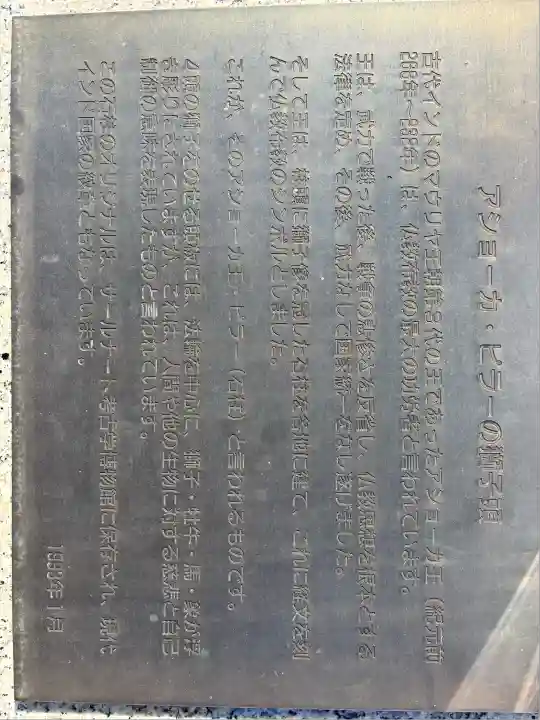 アショーカ・ピラーの獅子頭
古代インドのマウリヤ王朝第3代の王であったアショーカ王（紀元前
268年～232年）は、仏教布教の最大の功労者と言われています。
王は、武力で戦った後、戦争の悲惨さを反省し、仏教思想を根本とする
法律を定め、その後、武力なしで国家統一をなし遂げました。
そして王は、柱頭に獅子像を冠した石柱を各地に建て、これに経文を刻
んで仏教布教のシンボルとしました。
これが、そのアショーカ王・ピラー（石柱）と言われるものです。
4頭の獅子をのせる円形には、法輪を中心に、獅子・牡牛・馬・象が浮
き彫りにされていますが、これは、人間や他の生物に対する慈悲と自己
制御の意味を表現したものと言われています。
この石柱のオリジナルは、サールナート考古学博物館に保存され、現代
インド国家の徽章ともなっています。
1993年 1月